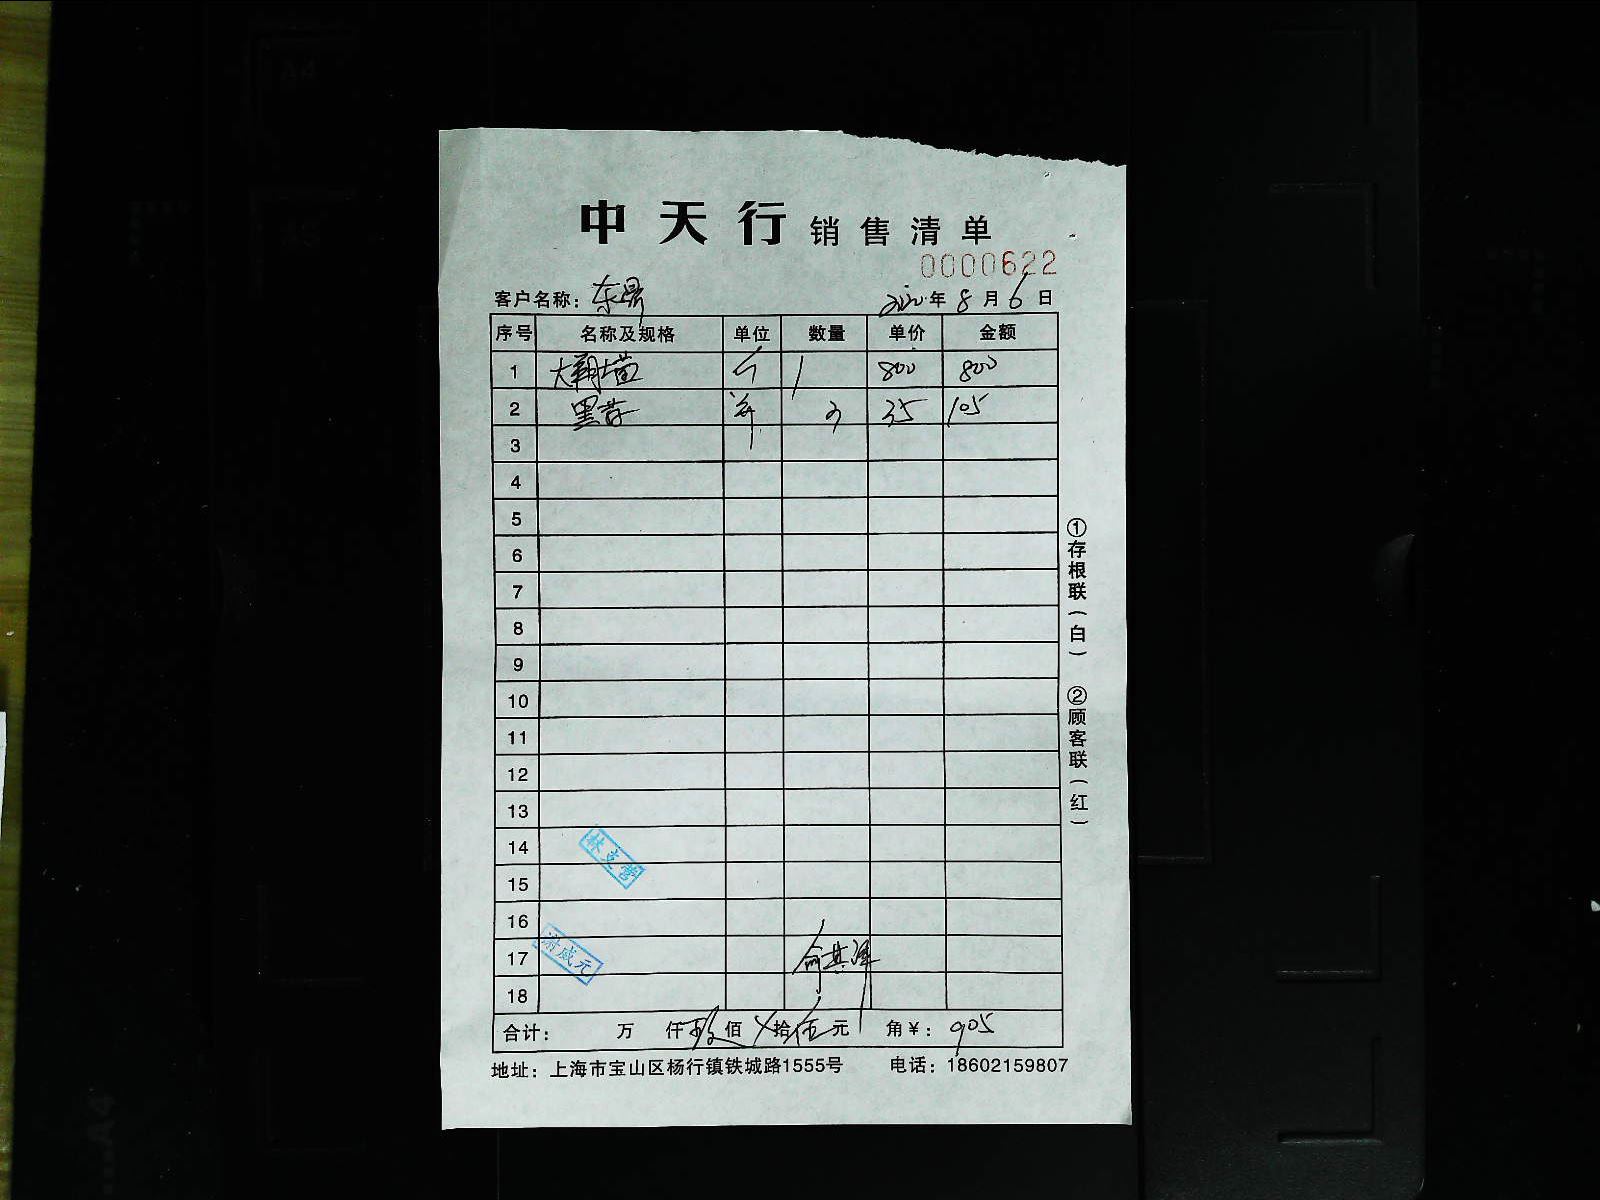 中天行 销售清单
0000622
客户名称: 东昇 2020年8月6日
序号 名称及规格 单位 数量 单价 金额
1 个 1 800 800
2 3 35 105
3
4
5
6
7
8
9
10
11
12
13
14
15
16
17
18
林克营
谢咸元
俞其泽
合计: 万 仟 玖佰 X拾伍元 角¥: 905
地址: 上海市宝山区杨行镇铁城路1555号 电话: 18602159807
①存根联(白) ②顾客联(红)